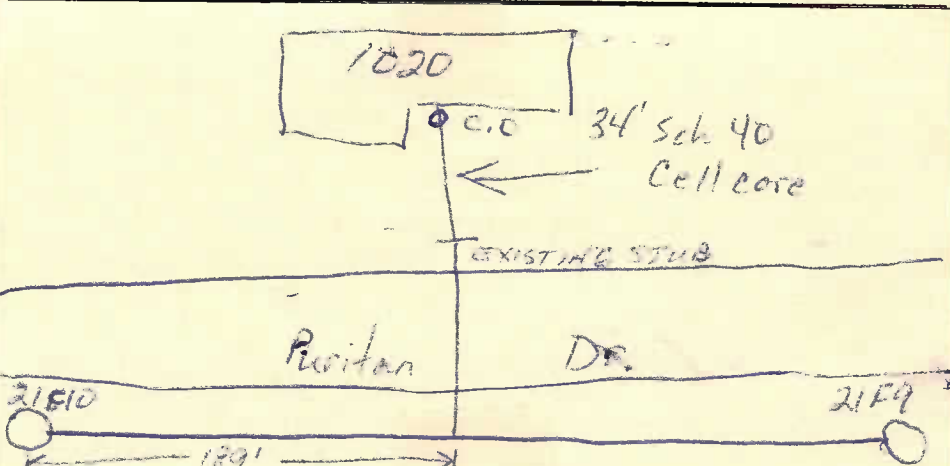 1020
C.O
34' Sch 40
Cell core
EXISTING STUB
Puritan Dr.
21F10
21F9
189'